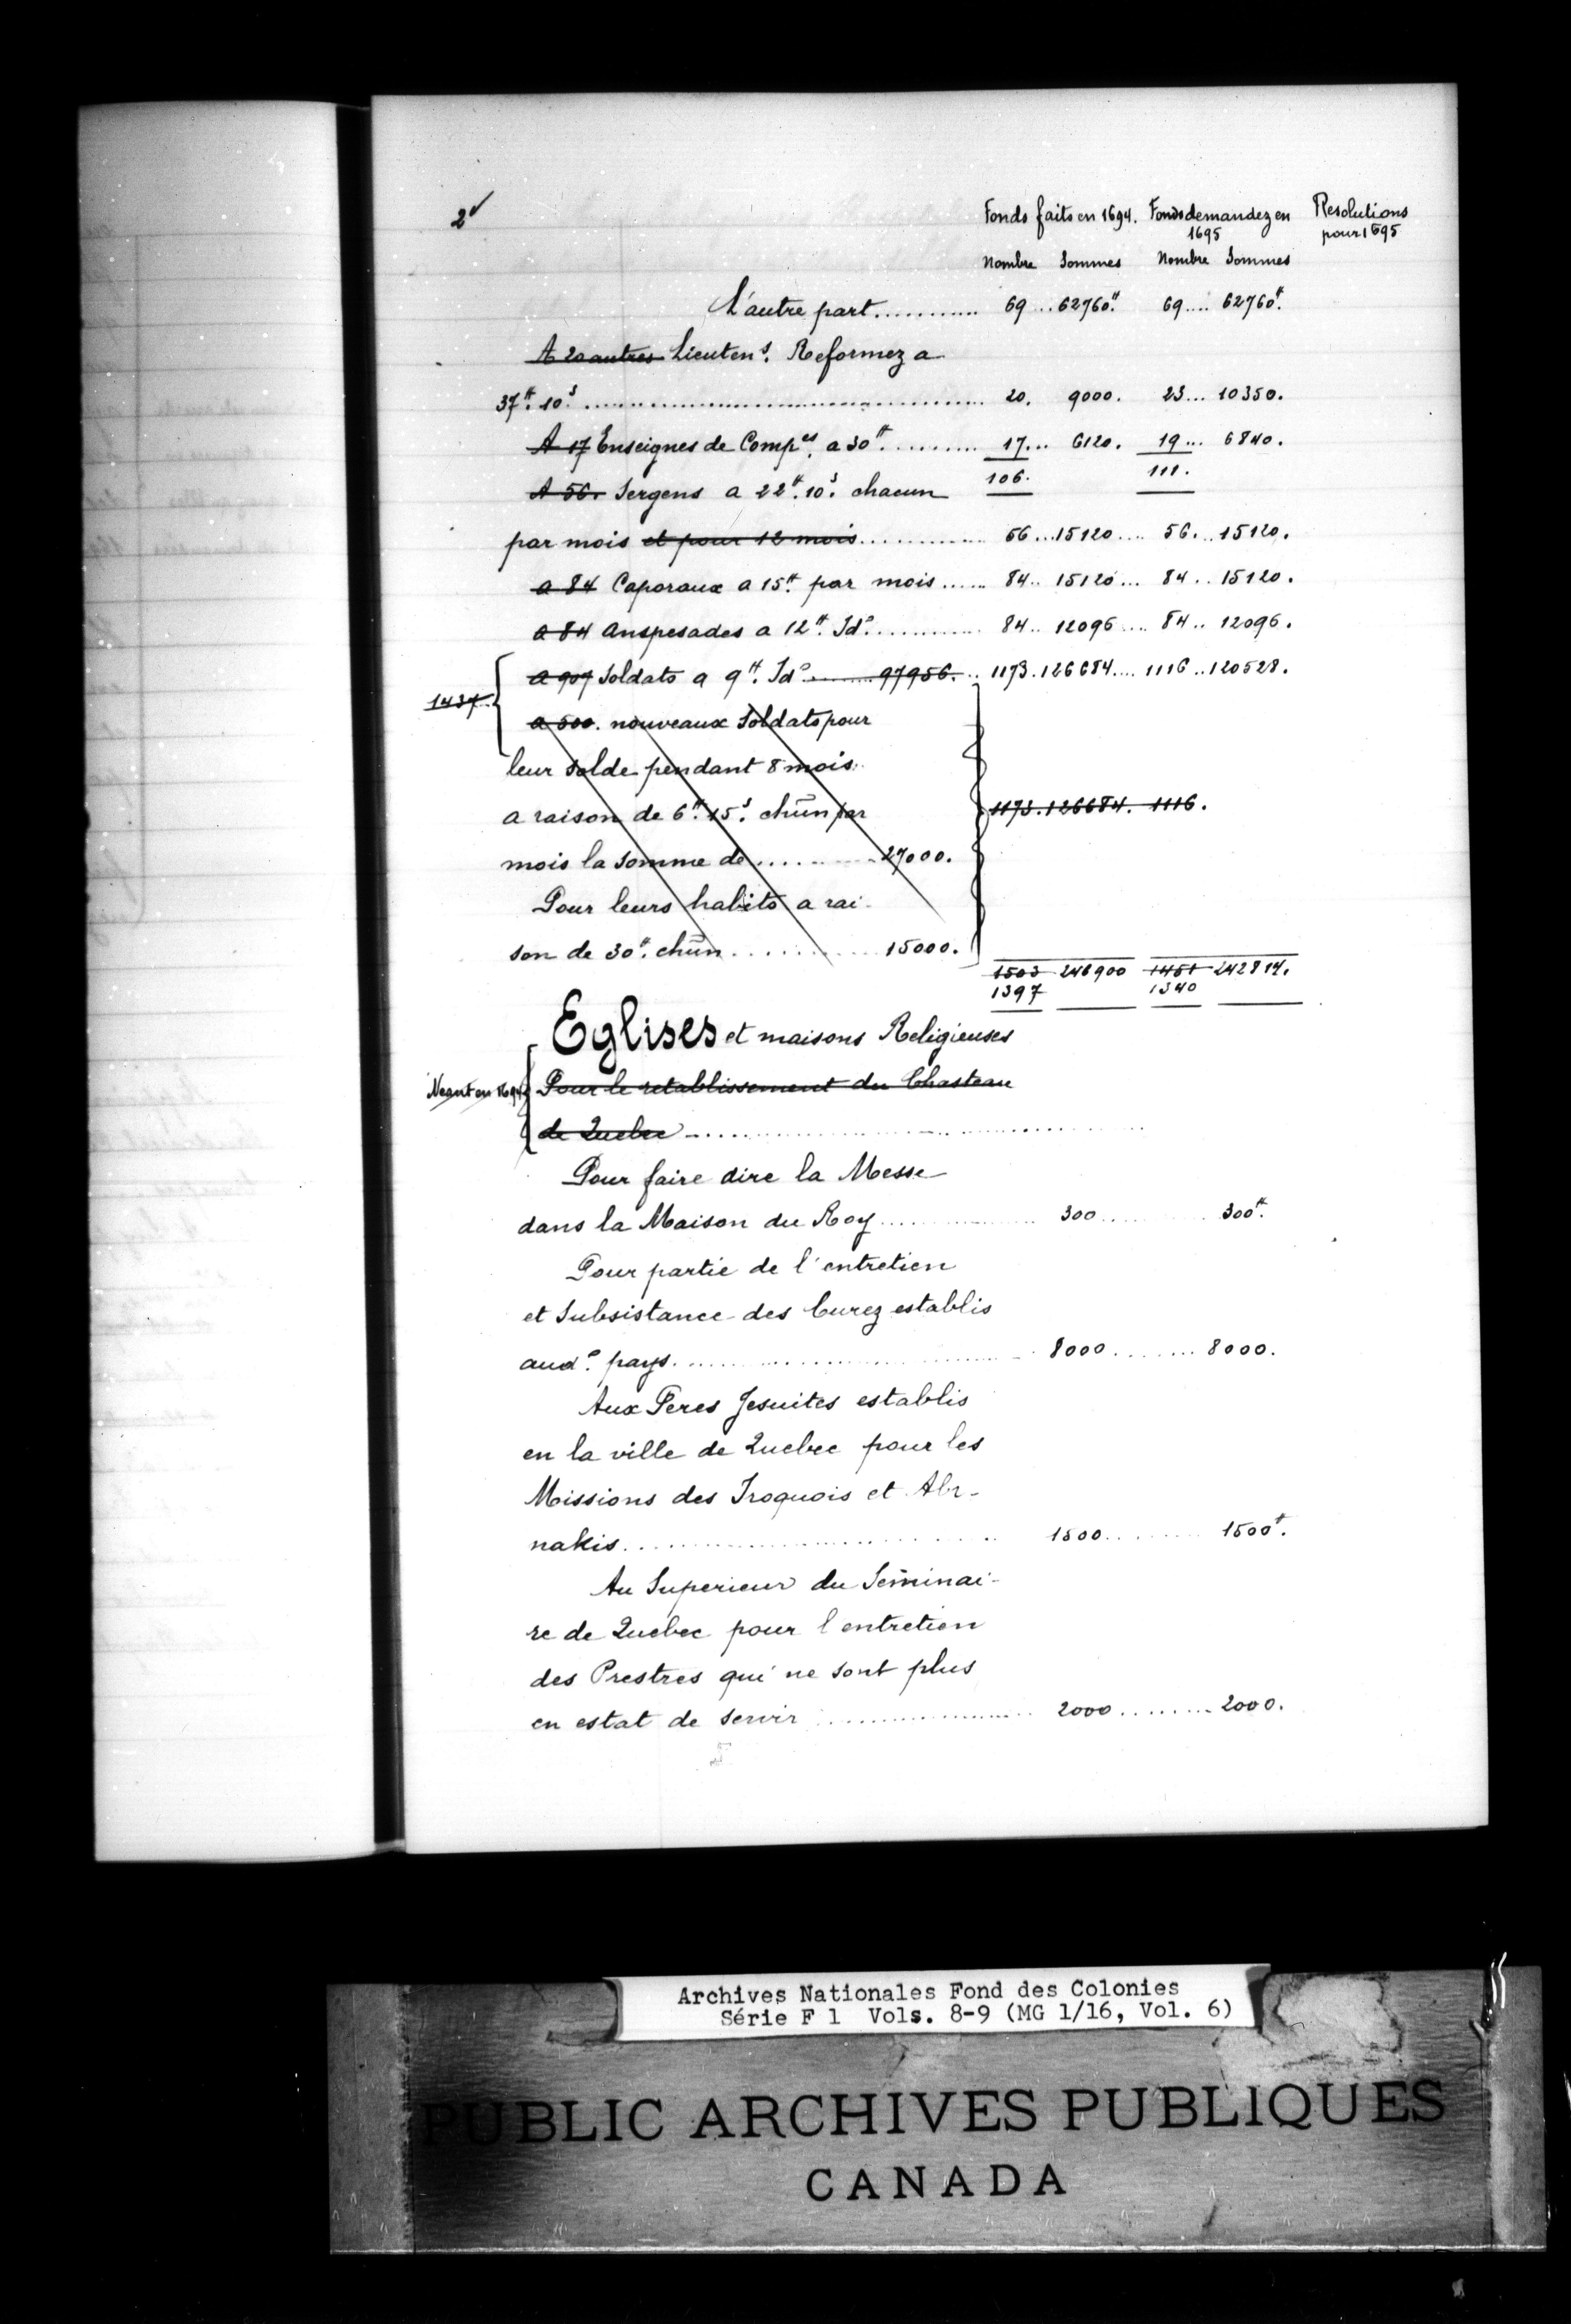 2
Fonds faits en 1694. Fonds demandez en 1695 Resolutions pour 1695
Nombre Sommes Nombre Sommes
L'autre part ........... 69 ... 62760ᵗᵗ. 69 .... 62760ᵗᵗ.
A 20 autres Lieutenˢ. Reformez a
37ᵗᵗ. 10ˢ. ........................ 20. 9000. 23 ... 10350.
A 17 Enseignes de Compᵉˢ. a 30ᵗᵗ .......... 17 ... 6120. 19 ... 6840.
106. 111.
A 56. Sergens a 22ᵗᵗ. 10ˢ. chacun
par mois et pour 12 mois ............ 56 ... 15120 .... 56 ... 15120.
a 84 Caporaux a 15ᵗᵗ. par mois ...... 84 .. 15120 ... 84 .. 15120.
a 84 Anspesades a 12ᵗᵗ. Idᵒ. ............ 84 .. 12096 .... 84 .. 12096.
a 907 Soldats a 9ᵗᵗ. Idᵒ ......... 97956. .. 1173 . 126684 .... 1116 .. 120528.
1437.
a 500. nouveaux Soldats pour
leur solde pendant 8 mois
a raison de 6ᵗᵗ. 15ˢ. chūn par 1173. 126684. 1116.
mois la somme de .......... 27000.
Pour leurs habits a rai-
son de 30ᵗᵗ. chūn .......... 15000.
1503 246900 1451 242814.
1397 1340
Eglises et maisons Religieuses
Neant en 1694 Pour le retablissement du Chasteau
de Quebec ........................
Pour faire dire la Messe
dans la Maison du Roy ............ 300 ........ 300ᵗᵗ.
Pour partie de l'entretien
et Subsistance des Curez establis
audᵒ. pays. .................... 8000 ........ 8000.
Aux Peres Jesuites establis
en la ville de Quebec pour les
Missions des Iroquois et Abr-
nakis. .................... 1500 ........ 1500ᵗᵗ.
Au Superieur du Seminai-
re de Quebec pour l'entretien
des Prestres qui ne sont plus
en estat de servir .................... 2000 ........ 2000.
Archives Nationales Fond des Colonies
Série F 1 Vols. 8-9 (MG 1/16, Vol. 6)
PUBLIC ARCHIVES PUBLIQUES
CANADA